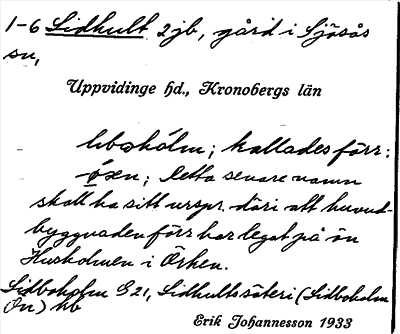 1-6 Lidhult 2jb, gård i Sjösås
sn,
Uppvidinge hd., Kronobergs län
kallades förr:
-öşen; detta senare namn
skall ha sitt urspr. däri att huvud-
byggnaden förr har legat på ön
Husholmen i Örken.
Lidboholm G 21, Lidhultssäteri (Lidboholm
Ön) hb
Erik Johannesson 1933